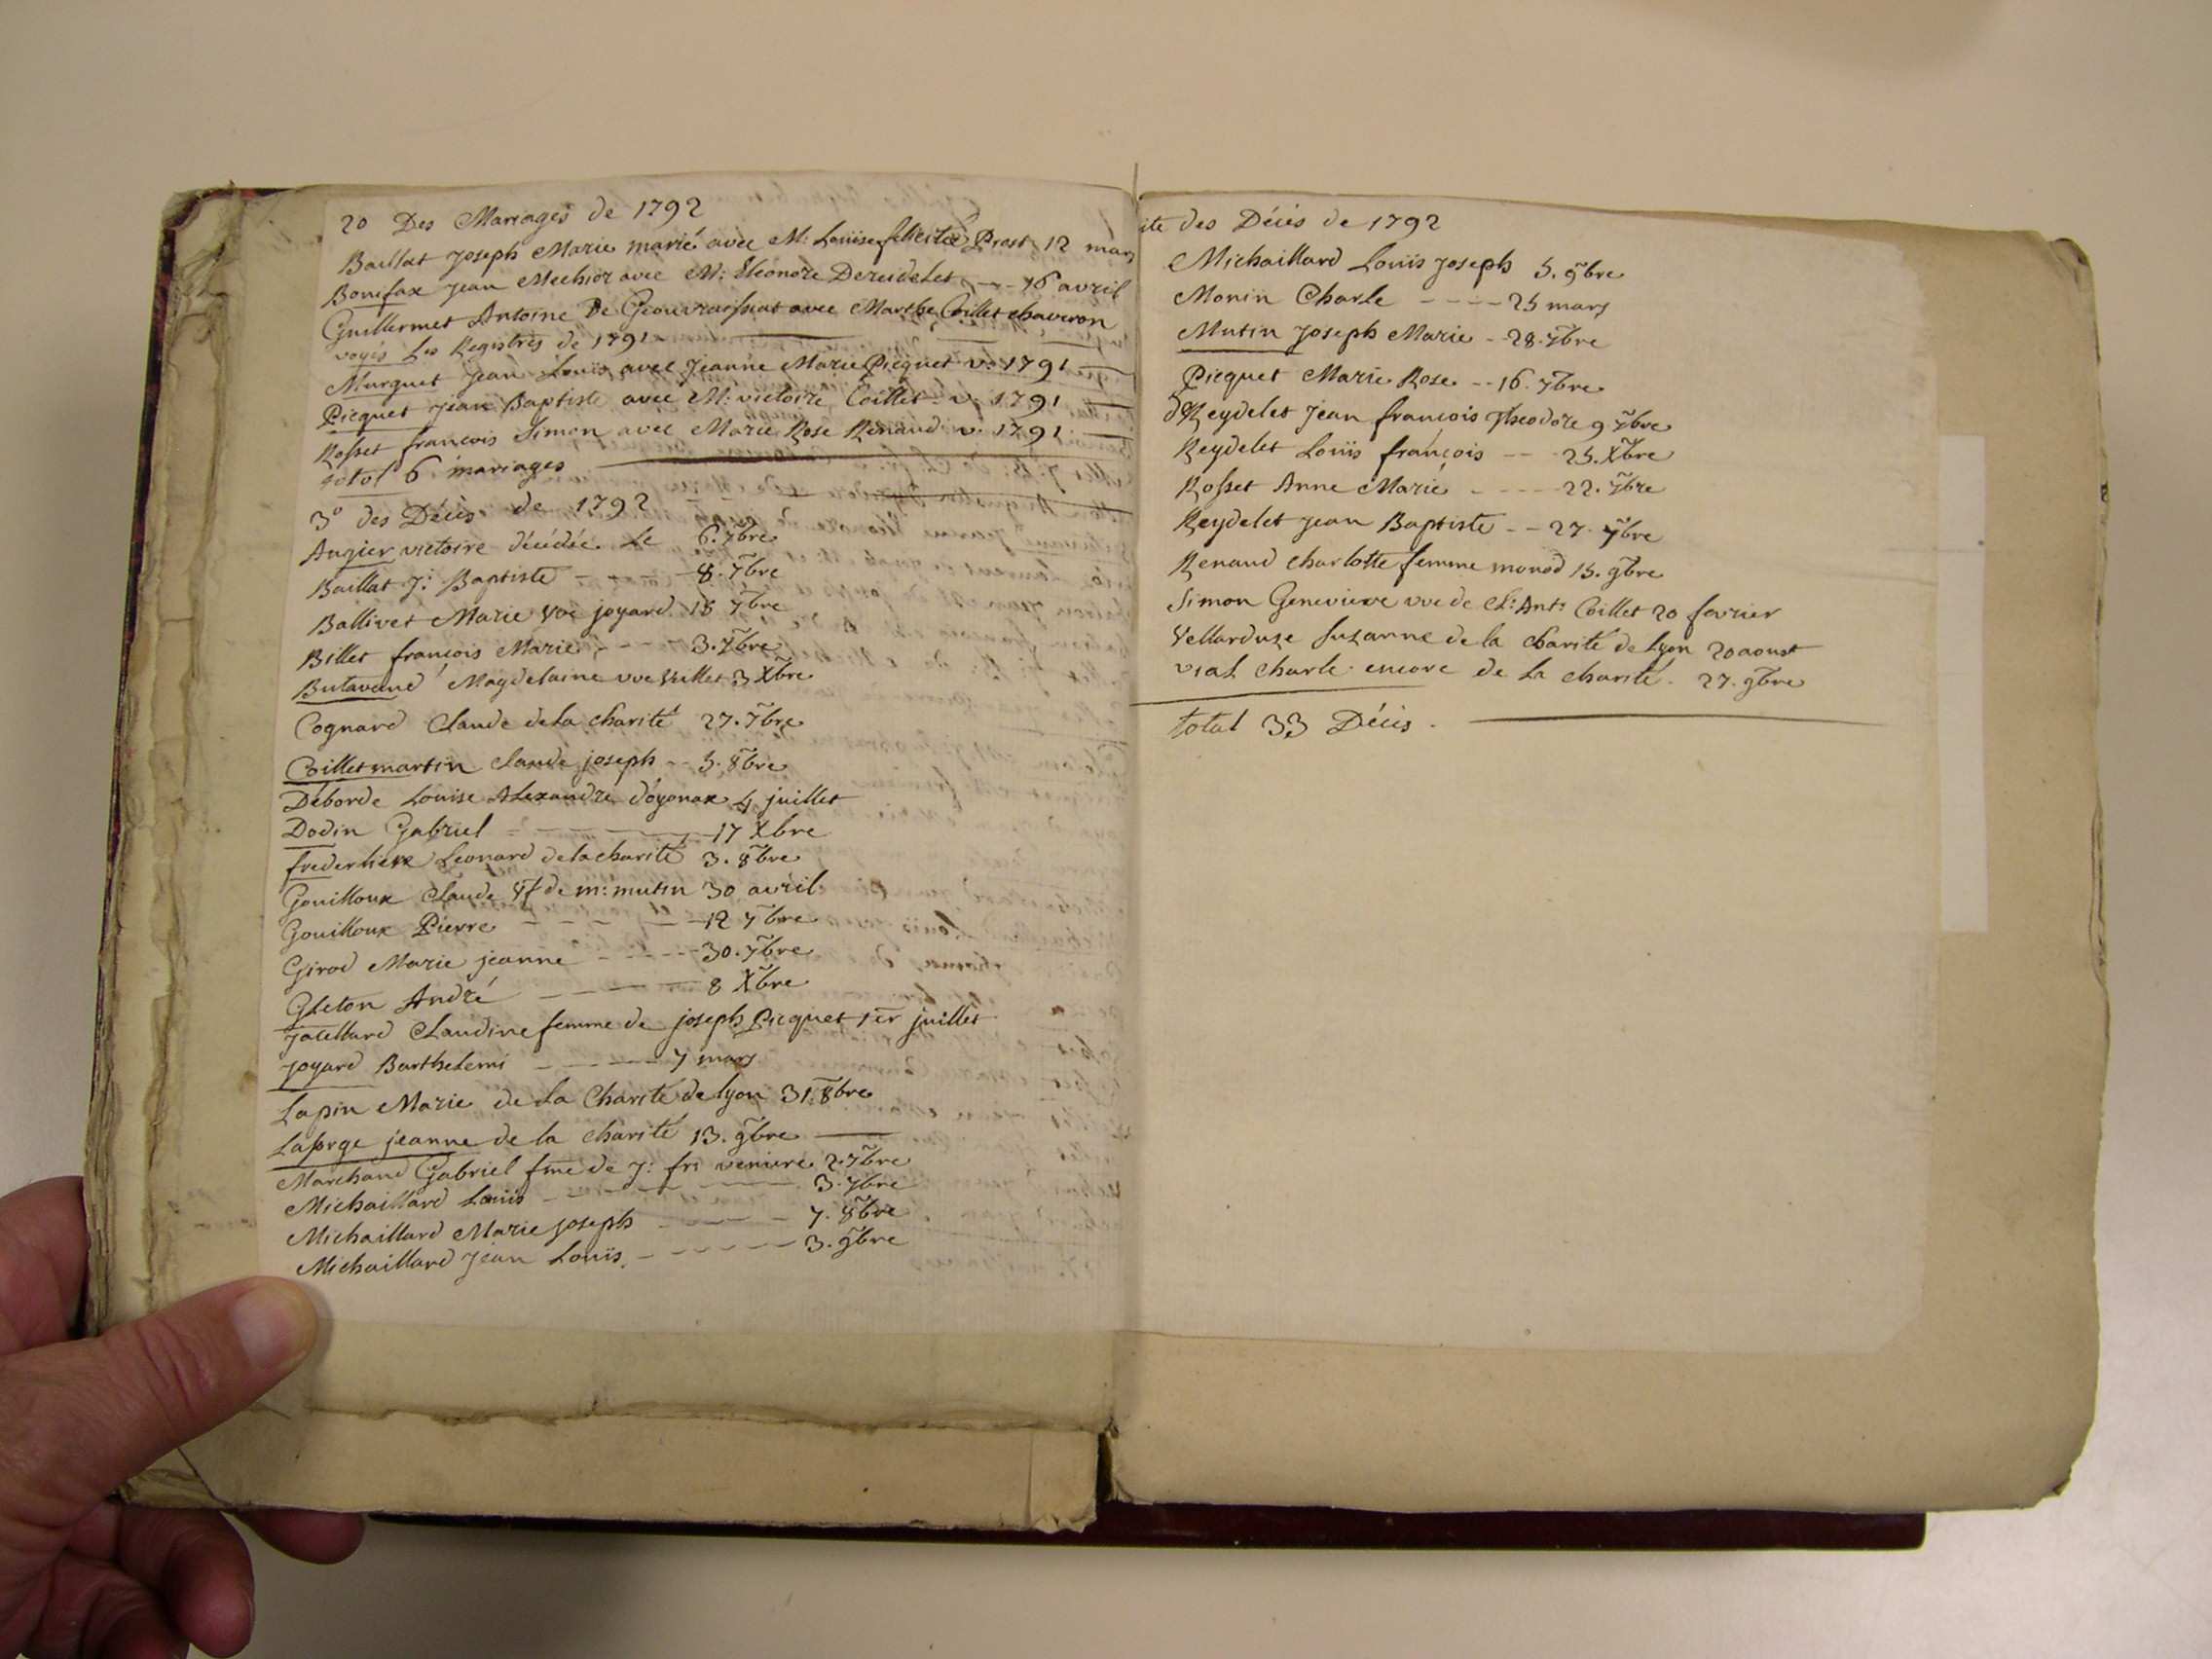 2o Des Mariages de 1792
Baillat Joseph Marie marié avec M: Louise felicité Prost 12 mars
Bonifax Jean Melchior avec M: Eleonore Dereidelet --- 16 avril
Guillermet Antoine De Geouvraissiat avec Marthe Coillet chaveron
voyés Les Registres de 1791
Murguet Jean Louis avec Jeanne Marie Picquet v. 1791
Picquet Jean Baptiste avec M: victoire Coillet. v. 1791
Rosset francois Simon avec Marie Rose Renaud v. 1791
total 6 mariages
3o des Décès de 1792
Augier victoire décédée Le 6. 7bre
Baillat J: Baptiste - - - 8. 7bre
Ballivet Marie vve joyard 18 7bre
Billet françois Marie - - - 3. 7bre
Butavand Magdelaine vve 3 Xbre
Cognard Claude de La charité 27. 7bre
Coilletmartin Claude joseph -- 5. 8bre
Déborde Louise Alexandre d'oyonax 4 juillet
Dodin Gabriel - - - - 17 Xbre
Leonard de la charité 3. 8bre
Gouilloux Claude de m: mutin 30 avril
Gouilloux Pierre - - - - 12 7bre
Girod Marie jeanne - - - - 30. 7bre
Gleton André - - - - 8 Xbre
Jatellard Claudine femme de joseph Picquet 1er juillet
Joyard Barthelemi - - - - 7 mars
Lapin Marie de La Charité de Lyon 31. 8bre
Laforge jeanne de la charité 13. 9bre
Marchand Gabriel fme de J: fri 2. 7bre
Michaillard Louis - - - - 3. 7bre
Michaillard Marie Joseph - - - - 7. 8bre
Michaillard Jean Louis. - - - - 3. 9bre
ite des Décès de 1792
Michaillard Louis Joseph 5. 9bre
Monin Charle - - - - 25 mars
Mutin Joseph Marie - 28. 7bre
Picquet Marie Rose -- 16. 7bre
dReydelet Jean françois Theodore 9 7bre
Reydelet Louis françois -- 25. Xbre
Rosset Anne Marie - - - - 22. 7bre
Reydelet Jean Baptiste -- 27. 7bre
Renaud charlotte femme monod 15. 9bre
Simon Genevieve vve de Cl: Ant: Coillet 20 fevrier
Vellarduze Suzanne de la charité de Lyon 20 aoust
vial Charle encore de La charité. 27. 9bre
total 33 Décès.